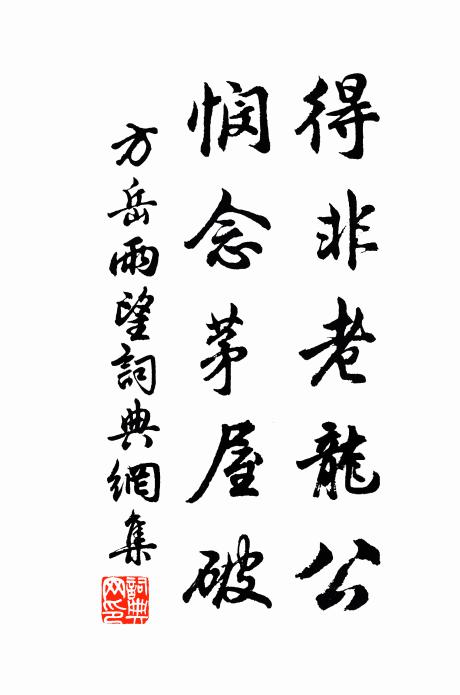 得非老龍公
憫念茅屋破
方岳雨望詞典網集
詞典網印